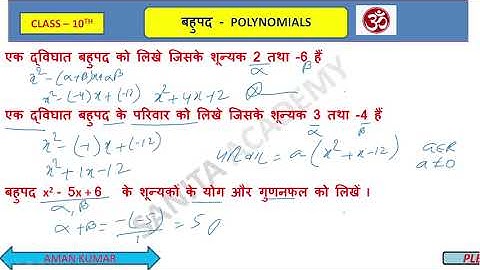 CLASS – 10TH
बहुपद - POLYNOMIALS
एक द्विघात बहुपद को लिखे जिसके शून्यक 2 तथा -6 हैं
α β
x² - (α+β)x + αβ
x² - (-4)x + (-12) x² + 4x - 12
एक द्विघात बहुपद के परिवार को लिखें जिसके शून्यक 3 तथा -4 हैं
α β
x² - (-1)x + (-12)
परिवार = a(x² + x - 12) a∈R
x² + 1x - 12 a≠0
बहुपद x² - 5x + 6 के शून्यकों के योग और गुणनफल को लिखें ।
α, β
α + β = -(-5)/1 = 5
SANITA ACADEMY
AMAN KUMAR